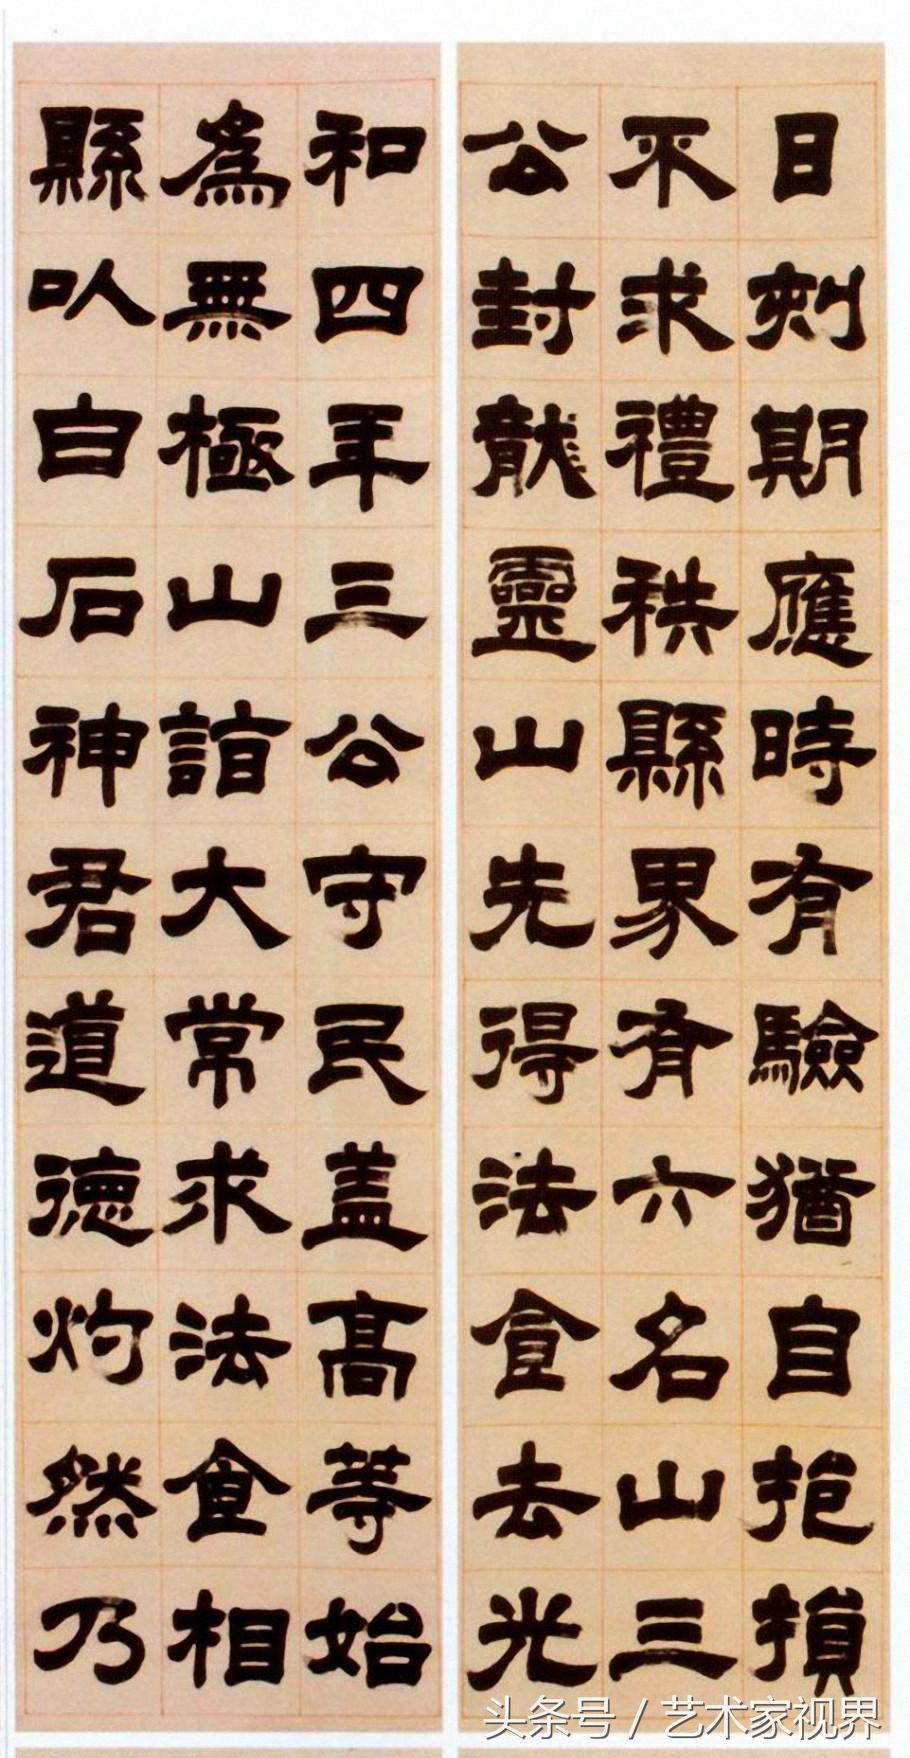 日刻期應時有驗猶自抱損
不求禮秩縣界有六名山三
公封龍靈山先得法食去光
和四年三公守民蓋高等始
為無極山詣大常求法食相
縣以白石神君道德灼然乃
头条号 / 艺术家视界